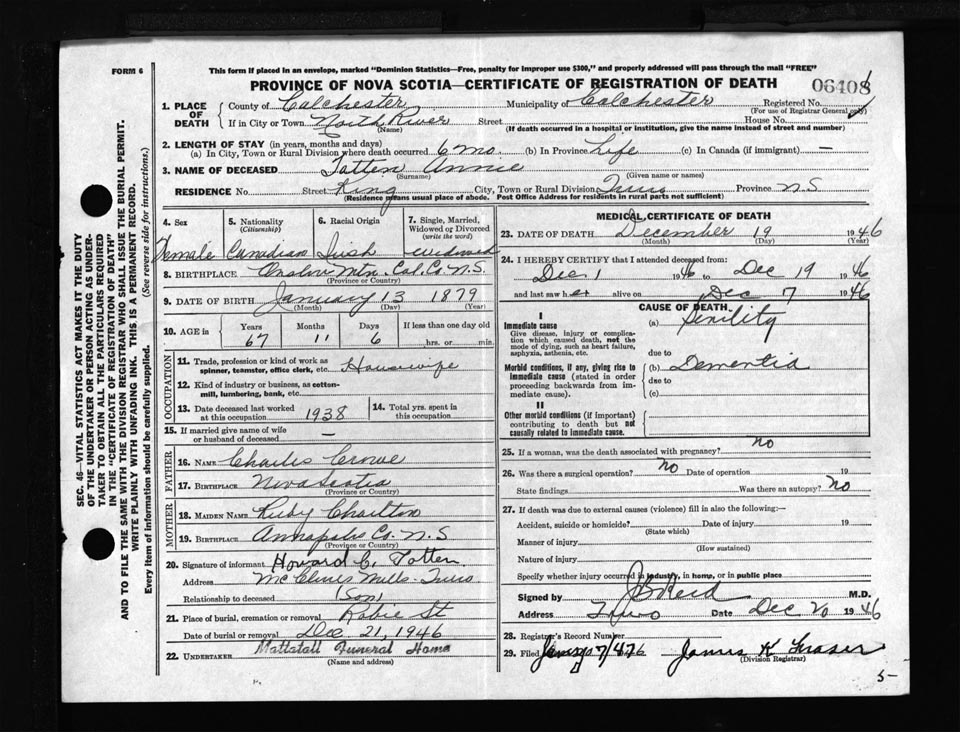 FORM 6
This form if placed in an envelope, marked "Dominion Statistics—Free, penalty for improper use $300," and properly addressed will pass through the mail "FREE"
PROVINCE OF NOVA SCOTIA—CERTIFICATE OF REGISTRATION OF DEATH
06408
1. PLACE OF DEATH
County of Colchester Municipality of Colchester Registered No.
(For use of Registrar General only)
If in City or Town North River Street House No.
(Name) (If death occurred in a hospital or institution, give the name instead of street and number)
2. LENGTH OF STAY (in years, months and days)
(a) In City, Town or Rural Division where death occurred 6 mo. (b) In Province Life (c) In Canada (if immigrant) —
3. NAME OF DECEASED Totten Annie
(Surname) (Given name or names)
RESIDENCE No. Street King City, Town or Rural Division Truro Province N.S
(Residence means usual place of abode. Post Office Address for residents in rural parts not sufficient)
4. Sex 5. Nationality (Citizenship) 6. Racial Origin 7. Single, Married, Widowed or Divorced (write the word)
Female Canadian Irish widowed
8. BIRTHPLACE Onslow Mtn. Col. Co. N.S.
(Province or Country)
9. DATE OF BIRTH January 13 1879
(Month) (Day) (Year)
10. AGE in Years Months Days If less than one day old
67 11 6 hrs. or min.
OCCUPATION
11. Trade, profession or kind of work as spinner, teamster, office clerk, etc. Housewife
12. Kind of industry or business, as cotton-mill, lumbering, bank, etc.
13. Date deceased last worked at this occupation 1938 14. Total yrs. spent in this occupation
15. If married give name of wife or husband of deceased —
FATHER
16. NAME Charles Crowe
17. BIRTHPLACE Nova Scotia
(Province or Country)
MOTHER
18. MAIDEN NAME Ruby Charlton
19. BIRTHPLACE Annapolis Co. N.S.
(Province or Country)
20. Signature of informant Howard C. Totten
Address McClures Mills - Truro.
Relationship to deceased (Son)
21. Place of burial, cremation or removal Robie St
Date of burial or removal Dec 21, 1946
22. UNDERTAKER Mattatall Funeral Home
(Name and address)
MEDICAL CERTIFICATE OF DEATH
23. DATE OF DEATH December 19 1946
(Month) (Day) (Year)
24. I HEREBY CERTIFY that I attended deceased from:
Dec 1 1946 to Dec 19 1946
and last saw her alive on Dec 7 1946
CAUSE OF DEATH
I
Immediate cause (a) Senility
Give disease, injury or complication which caused death, not the mode of dying, such as heart failure, asphyxia, asthenia, etc.
due to
Morbid conditions, if any, giving rise to immediate cause (stated in order proceeding backwards from immediate cause).
(b) Dementia
due to
(c)
II
Other morbid conditions (if important) contributing to death but not causally related to immediate cause.
25. If a woman, was the death associated with pregnancy? no
26. Was there a surgical operation? no Date of operation 19
State findings Was there an autopsy? no
27. If death was due to external causes (violence) fill in also the following:—
Accident, suicide or homicide? Date of injury 19
(State which)
Manner of injury
(How sustained)
Nature of injury
Specify whether injury occurred in industry, in home, or in public place
Signed by J B Reid M.D.
Address Truro Date Dec 20 1946
28. Registrar's Record Number
29. Filed 7/47 James K Fraser
(Division Registrar)
5-
SEC. 46—VITAL STATISTICS ACT MAKES IT THE DUTY
OF THE UNDERTAKER OR PERSON ACTING AS UNDER-
TAKER TO OBTAIN ALL THE PARTICULARS REQUIRED
IN THE "CERTIFICATE OF REGISTRATION OF DEATH"
AND TO FILE THE SAME WITH THE DIVISION REGISTRAR WHO SHALL ISSUE THE BURIAL PERMIT.
WRITE PLAINLY WITH UNFADING INK. THIS IS A PERMANENT RECORD.
Every item of information should be carefully supplied. (See reverse side for instructions.)